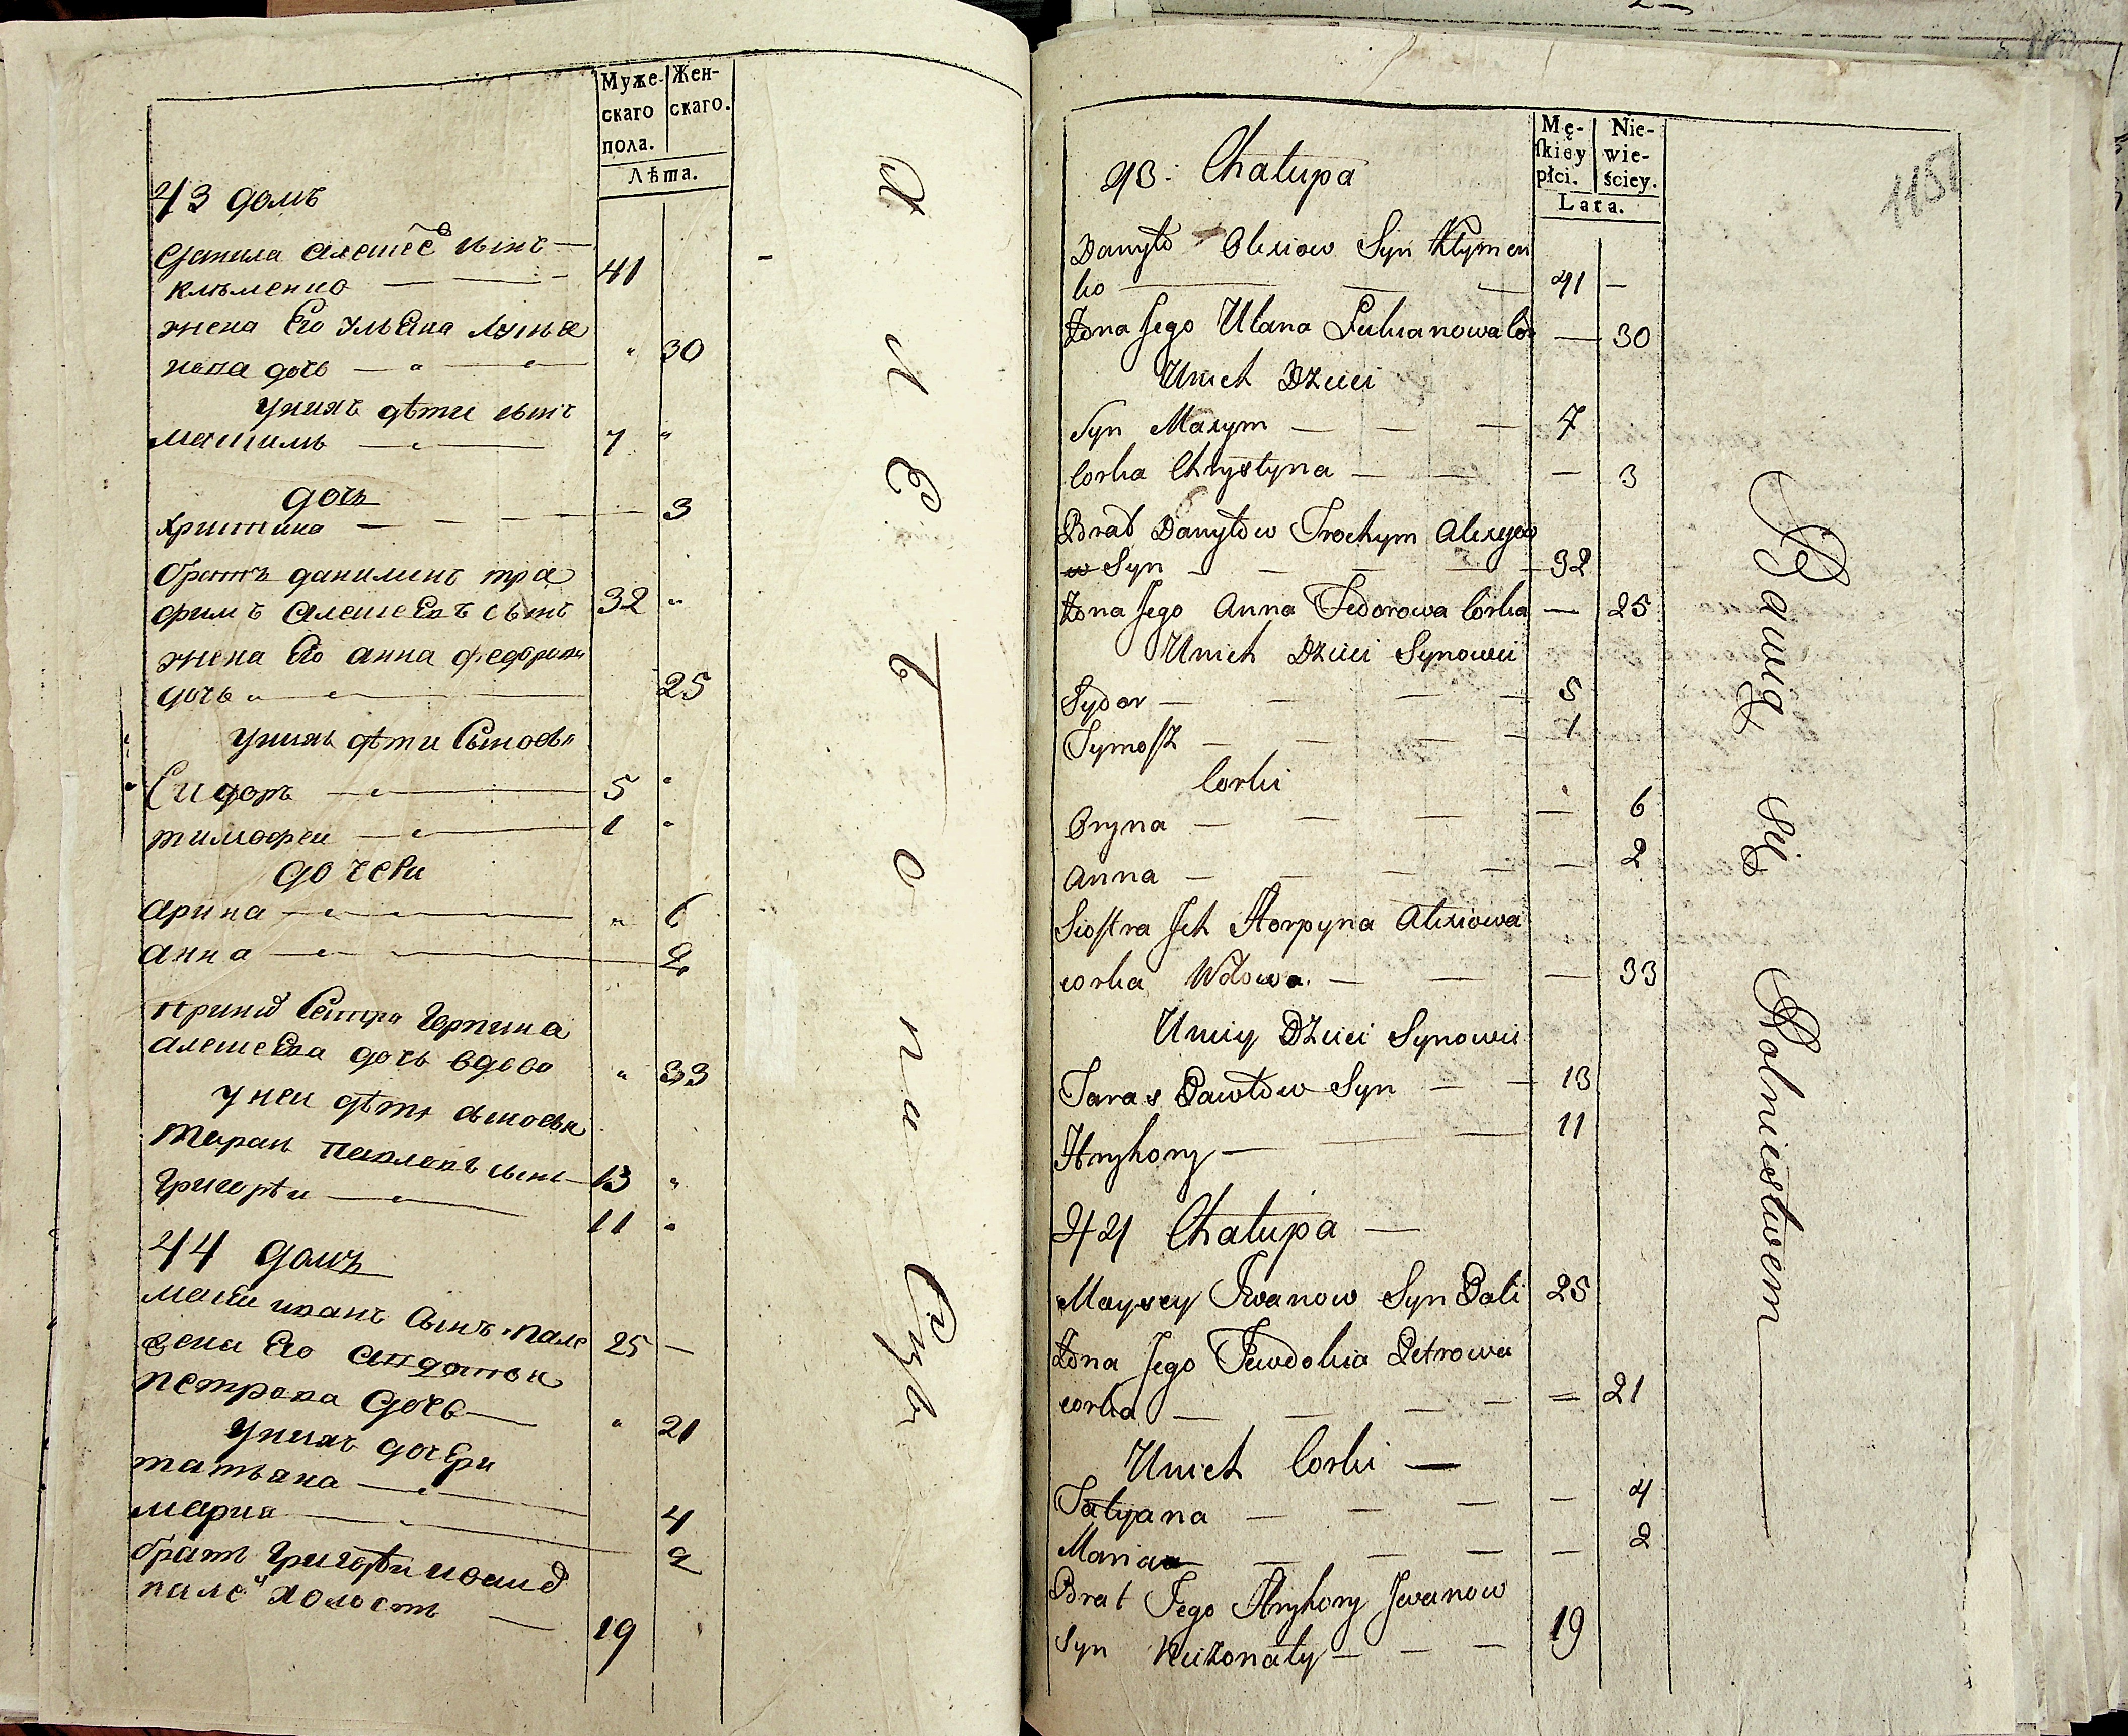 Муже-
скаго
пола.
Жен-
скаго.
Лѣта.
43 домъ
Данила Алешеевъ сынъ —
клъменко — 41
жена Его ульяна лукья
нова дочь — 30
у нихъ дѣти сынъ
мак̃симъ — 7
дочь
христина — 3
братъ данилинъ тро
фимъ алешеевъ сынъ 32
жена Его анна федорова
дочь — 25
у нихъ дѣти сыновья
Сидоръ — 5
тимофеи — 1
дочери
арина — 6
анна — 2
сестра
алешеева дочь вдова 33
у неи дѣти сыновья
тарас павловъ сынъ — 13
григорѣи — 11
44 домъ
сынъ пале 25 —
жена Его
петрова дочь — 21
у нихъ дочери
татьяна — 4
мария — 2
братъ григорѣи
пале холостъ — 19
Mę-
ſkiey
płci.
Nie-
wie-
ściey.
Lata.
1151
43. Chałupa
Danyło Olexiow Syn Kłymen
ko — 41 —
Żona Jego Ulana Lukianowa Cor — 30
U nich Dzieci
Syn Maxym — 7
Corka Chrystyna — 3
Brat Danyłow Trochym Alexyeo
w Syn — 32
Żona Jego Anna Fedorowa Corka — 25
U nich Dzieci Synowie
Sydor — 5
Tymoſz — 1
Corki
Oryna — 6
Anna — 2
Sioſtra Jch Horpyna Alexiowa
corka Wdowa. — 33
U niey Dzieci Synowie
Taras Pawłow Syn — 13
Hryhory — 11
44 Chałupa —
Moysey Iwanow Syn Pali 25
Żona Jego Jewdokia Petrowa
corka — 21
U nich Corki —
Tatyana — 4
Maria — 2
Brat Jego Hryhory Jwanow
Syn Nieżonaty — 19
Bawią się Rolnictwem